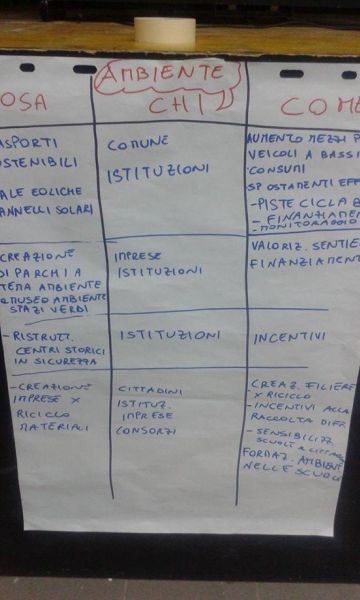 AMBIENTE
OSA
CHI
COME
ASPORTI
OSTENIBILI
ALE EOLICHE
ANNELLI SOLARI
COMUNE
ISTITUZIONI
AUMENTO MEZZI P
VEICOLI A BASS
CONSUMI
SPOSTAMENTI EFF
- PISTE CICLAB
- FINANZIAMEN
- MONITORAGGIO
CREAZIONE
DI PARCHI A
TEMA AMBIENTE
MUSEO AMBIENTE
SPAZI VERDI
IMPRESE
ISTITUZIONI
VALORIZ. SENTIE
FINANZIAMENT
- RISTRUTT.
CENTRI STORICI
IN SICUREZZA
ISTITUZIONI
INCENTIVI
- CREAZIONE
IMPRESE X
RICICLO
MATERIALI
CITTADINI
ISTITUZ.
IMPRESE
CONSORZI
CREAZ. FILIERE
X RICICLO
- INCENTIVI ALLA
RACCOLTA DIFF.
- SENSIBILIZZ.
SCUOLE E CITTADINI
FORMAZ. AMBIENT
NELLE SCUOLE